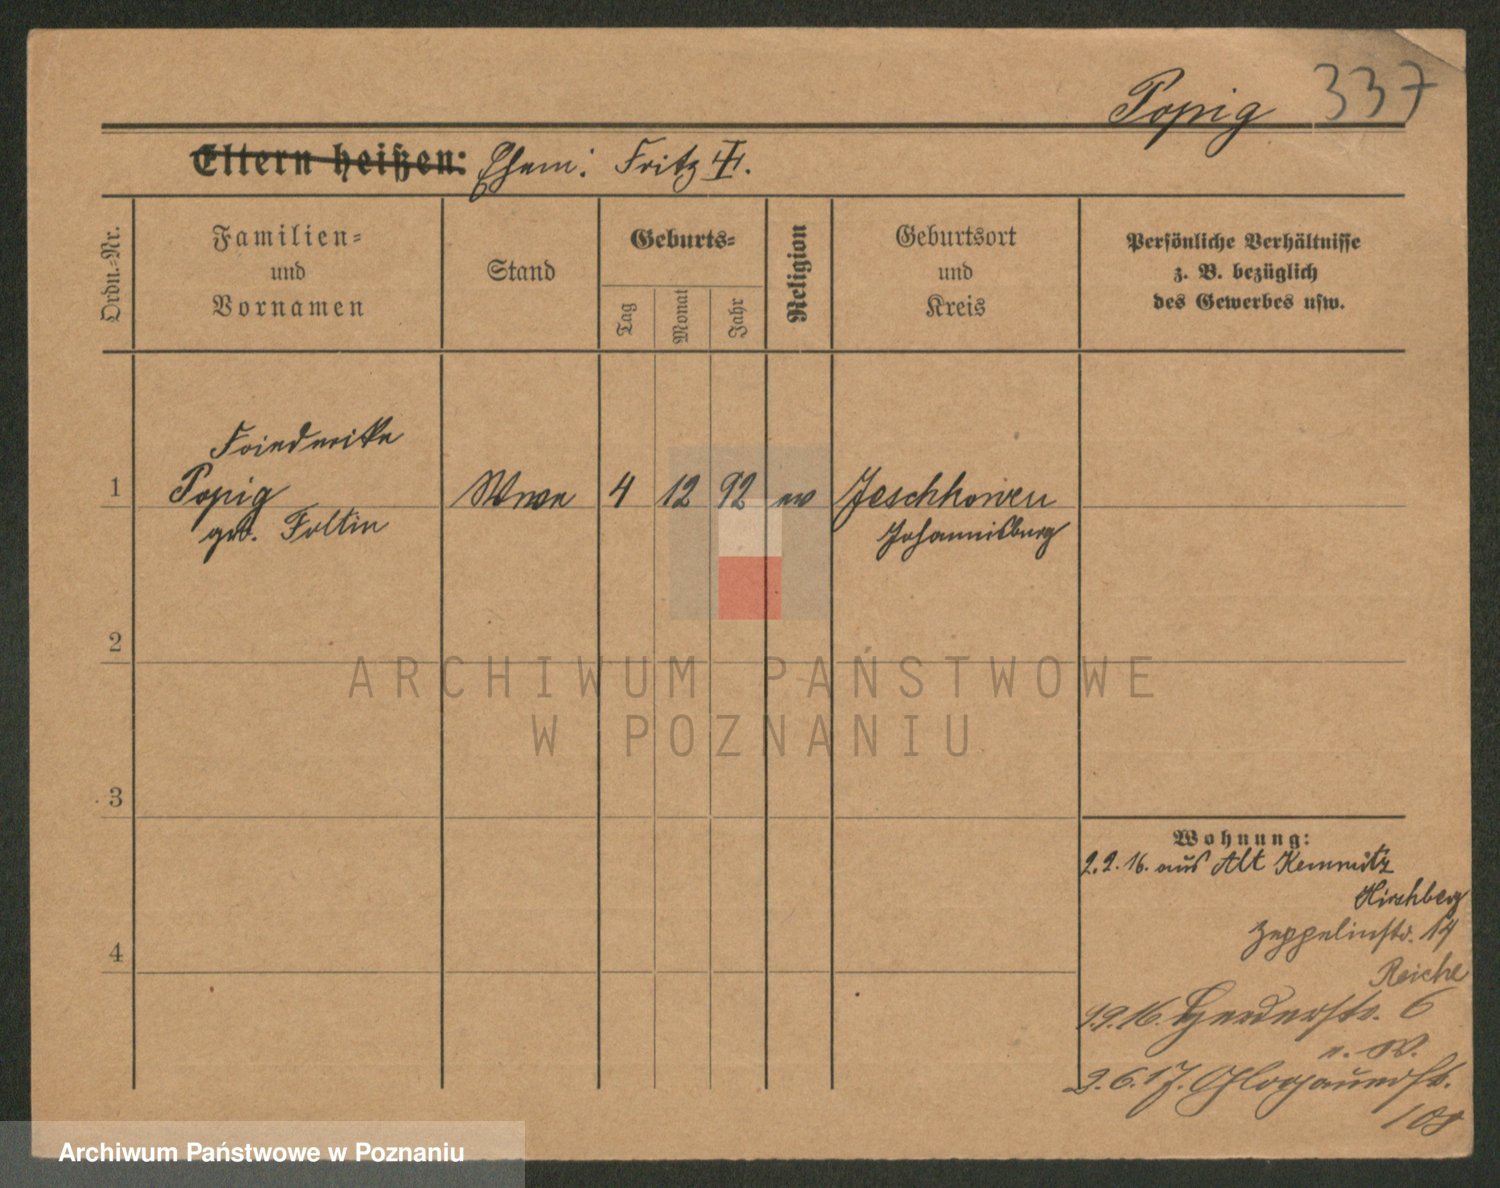 Popig 337
Eltern heißen: Ehem: Fritz
Ordn.-Nr.
Familien-
und
Vornamen
Stand
Geburts-
Tag
Monat
Jahr
Religion
Geburtsort
und
Kreis
Persönliche Verhältnisse
z. B. bezüglich
des Gewerbes usw.
Friederike
1 Popig Wwe 4 12 92 ev Jeschkowen
geb. Foltin Johannisburg
2
3
4
Wohnung:
2.2.16. aus Alt Kemnitz
Hirschberg
Zeppelinstr. 14
Reiche
1.9.16. Herderstr. 6
2.6.17. Glogauerstr.
108
ARCHIWUM PAŃSTWOWE
W POZNANIU
Archiwum Państwowe w Poznaniu